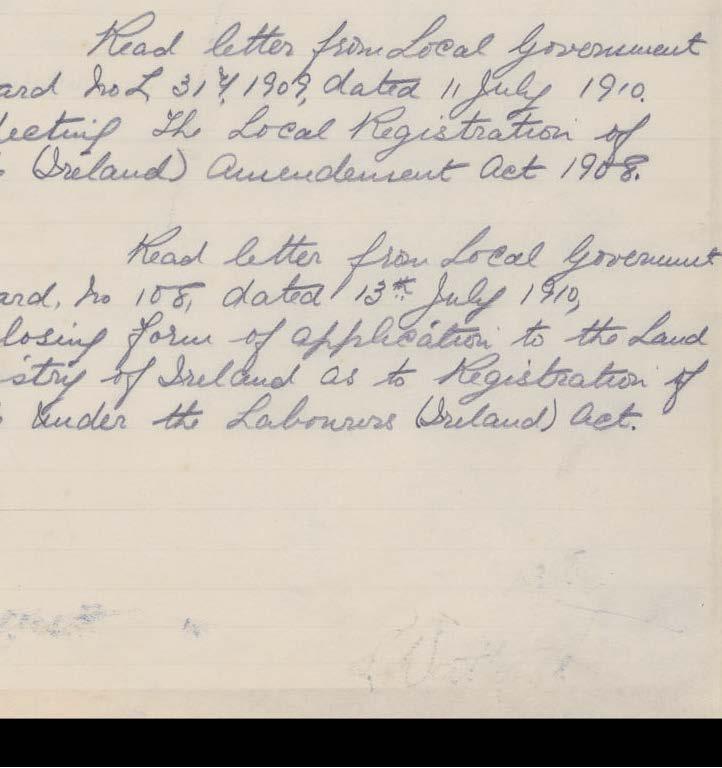 Read letter from Local Government
ard No L 31 1909, dated 11 July 1910.
lecting The Local Registration of
(Ireland) Amendement Act 1908.
Read letter from Local Goverment
ard, No 108, dated 13th July 1910,
losing form of application to the Land
istry of Ireland as to Registration of
under the Labourers (Ireland) Act.